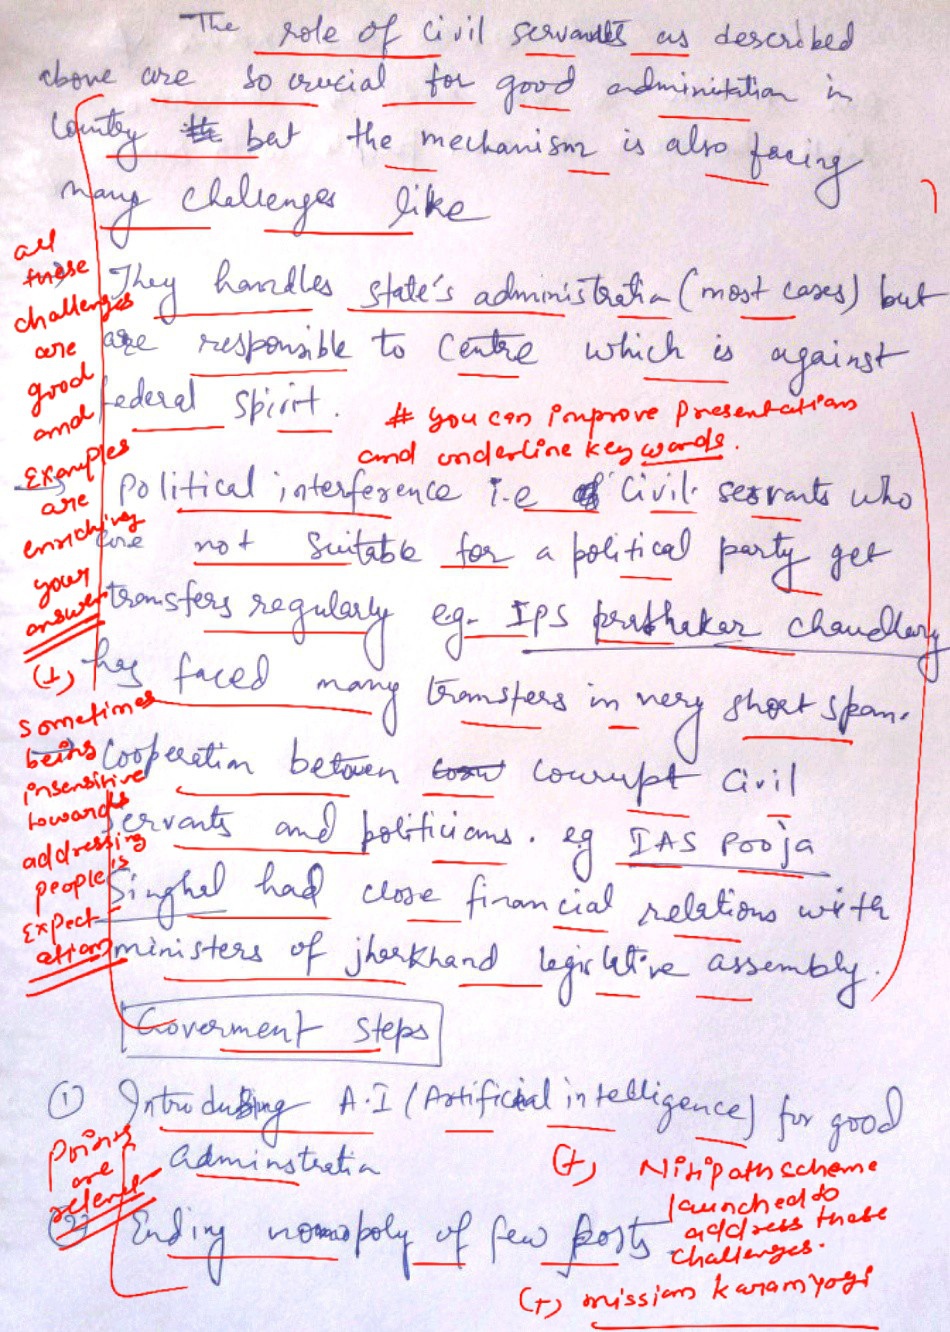 The role of Civil servants as described
above are so crucial for good administation in
Country but the mechanism is also facing
many challenges like
They handles state's administration (most cases) but
are responsible to Centre which is against
federal spirit.
# you can improve presentations
and underline key words.
Political interference i.e of Civil servants who
are not suitable for a political party get
transfers regularly e.g. IPS prabhakar chaudhary
has faced many transfers in very short span.
Cooperation betwen corrupt Civil
servants and politicians. eg IAS Pooja
Singhal had close financial relations with
ministers of jharkhand legislative assembly.
all
these
challenges
are
good
and
Examples
are
enriching
your
answer
(+)
sometimes
being
insensitive
towards
addressing
people's
Expect-
ation
Goverment Steps
(1) Introducing A.I (Artificial intelligence) for good
adminstration
Points
are
relevant
(2) Ending monopoly of few posts
(+) Nitipath scheme
launched to
address these
challenges.
(+) mission karamyogi